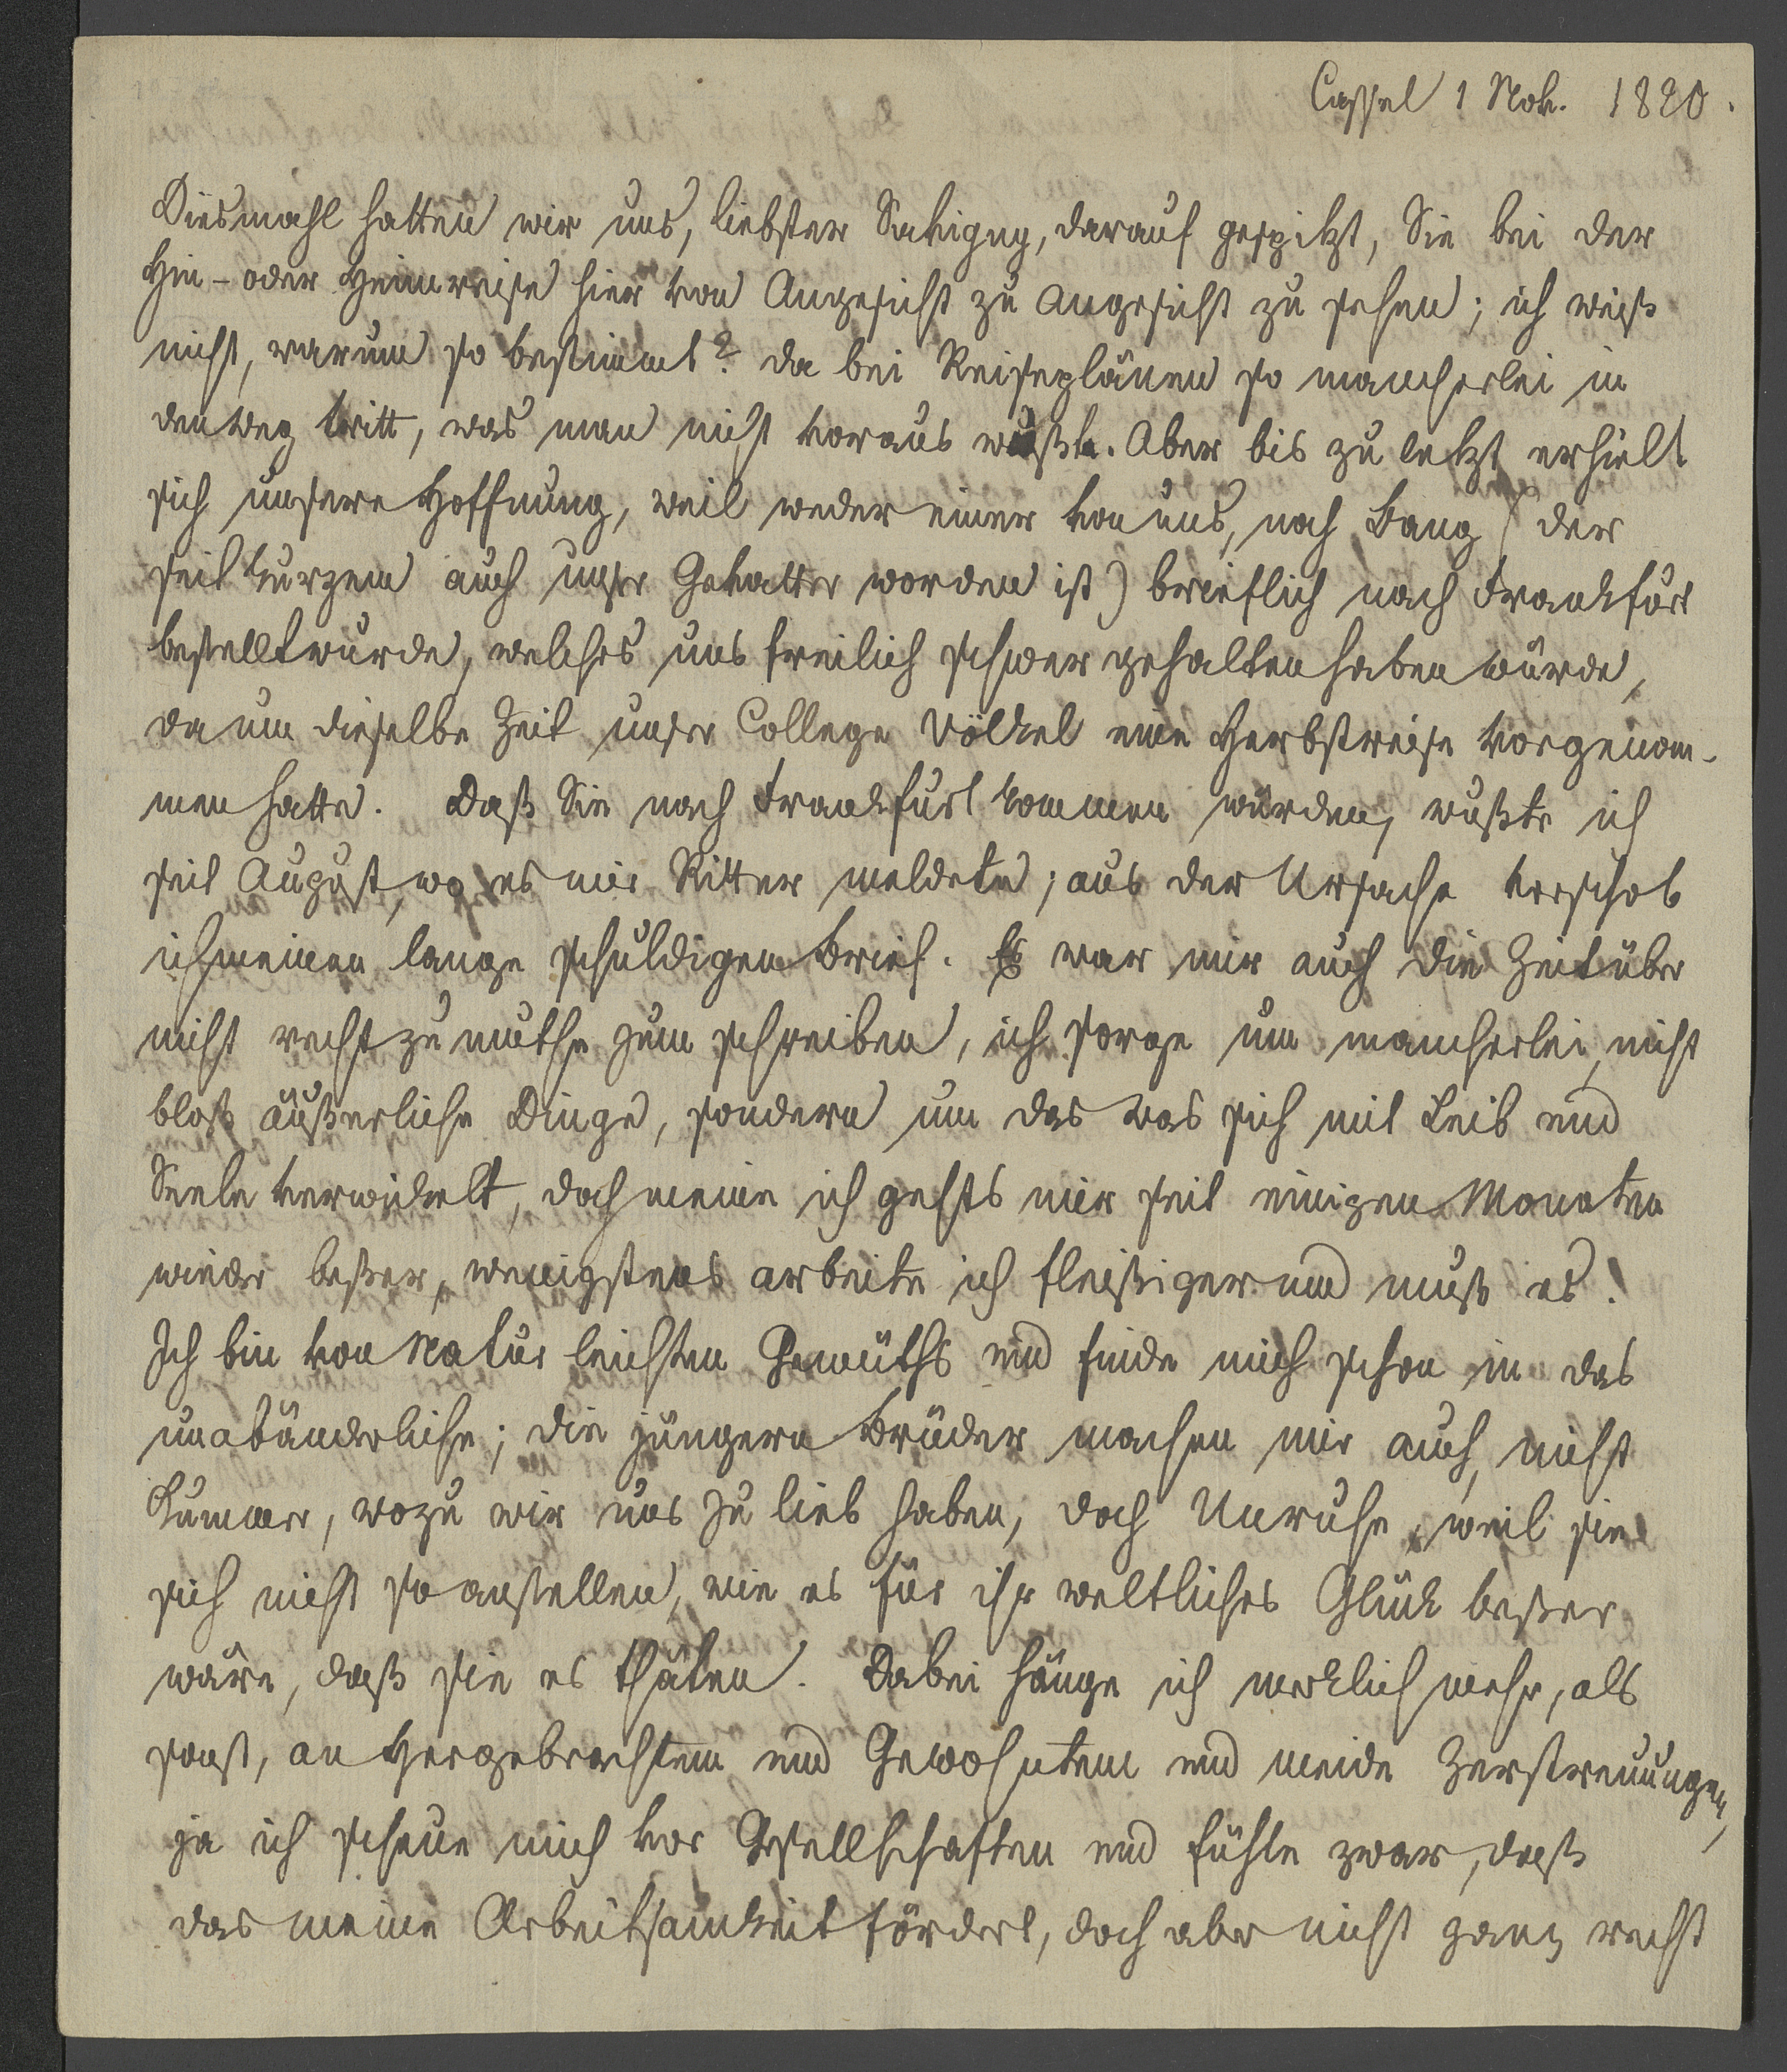 Cassel 1 Nov. 1820.
Diesmahl hatten wir uns, liebster Savigny, darauf gespitzt, Sie bei der
Hin- oder Heimreise hier von Angesicht zu Angesicht zu sehen; ich weiß
nicht, warum so bestimmt? da bei Reiseplänen so mancherlei in
den Weg tritt, was man nicht voraus wußte. Aber bis zu letzt erhielt
sich unsere Hoffnung, weil weder einer von uns, noch Bang (der
seit kurzem auch unser Gevatter worden ist) brieflich nach Frankfurt
bestellt wurde, welches uns freilich schwer gehalten haben würde,
da um dieselbe Zeit unser College Völkel eine Herbstreise vorgenom-
men hatte. Daß Sie nach Frankfurt kommen würden, wußte ich
seit August, wo es mir Ritter meldete; aus der Ursache verschob
ich meinen lange schuldigen Brief. Es war mir auch die Zeit über
nicht recht zu muthe zum schreiben, ich sorge um mancherlei, nicht
bloß äußerliche Dinge, sondern um das was sich mit Leib und
Seele verwickelt, doch meine ich gehts mir seit einigen Monaten
wieder beßer, wenigstens arbeite ich fleißiger und muß es!
Ich bin von Natur leichten Gemüths und finde mich schon in das
unabänderliche; die jüngern Brüder machen mir auch, nicht
Kummer, wozu wir uns zu lieb haben, doch Unruhe, weil sie
sich nicht so anstellen, wie es für ihr weltliches Glück beßer
wäre, daß sie es thäten. Dabei hänge ich merklich mehr, als
sonst, an Hergebrachtem und Gewohntem und meide Zerstreuungen,
ja ich scheue mich vor Gesellschaften und fühle zwar, daß
das meine Arbeitsamkeit fördert, doch aber nicht ganz recht